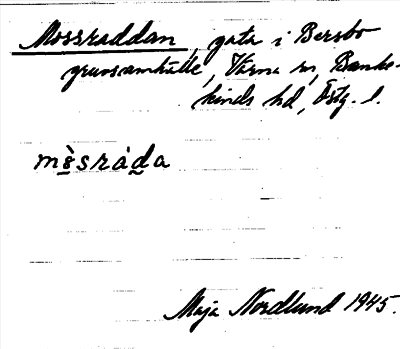 Mossraddan, gata i Bersbo
gruvsamhälle, Värna sn, Banke-
kinds hd, Östg. l.
mo̱̊̀sràd̰a
Maja Nordlund 1945.